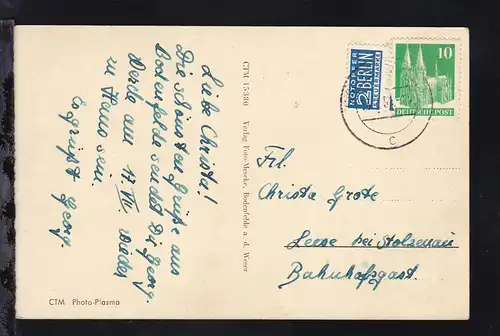 Liebe Christa!
Die schönsten Grüße aus
Bodenfelde sendet Dir Georg.
Werde am 17. VII. wieder
zu Haus sein.
Es grüßt Georg.
CTM Photo-Plasma
CTM 15330 Verlag Foto-Mencke, Bodenfelde a. d. Weser
NOTOPFER
2 BERLIN
STEUERMARKE
10
DEUTSCHE POST
c
Frl.
Christa Grote
Leese bei Stolzenau
Bahnhofsgast.